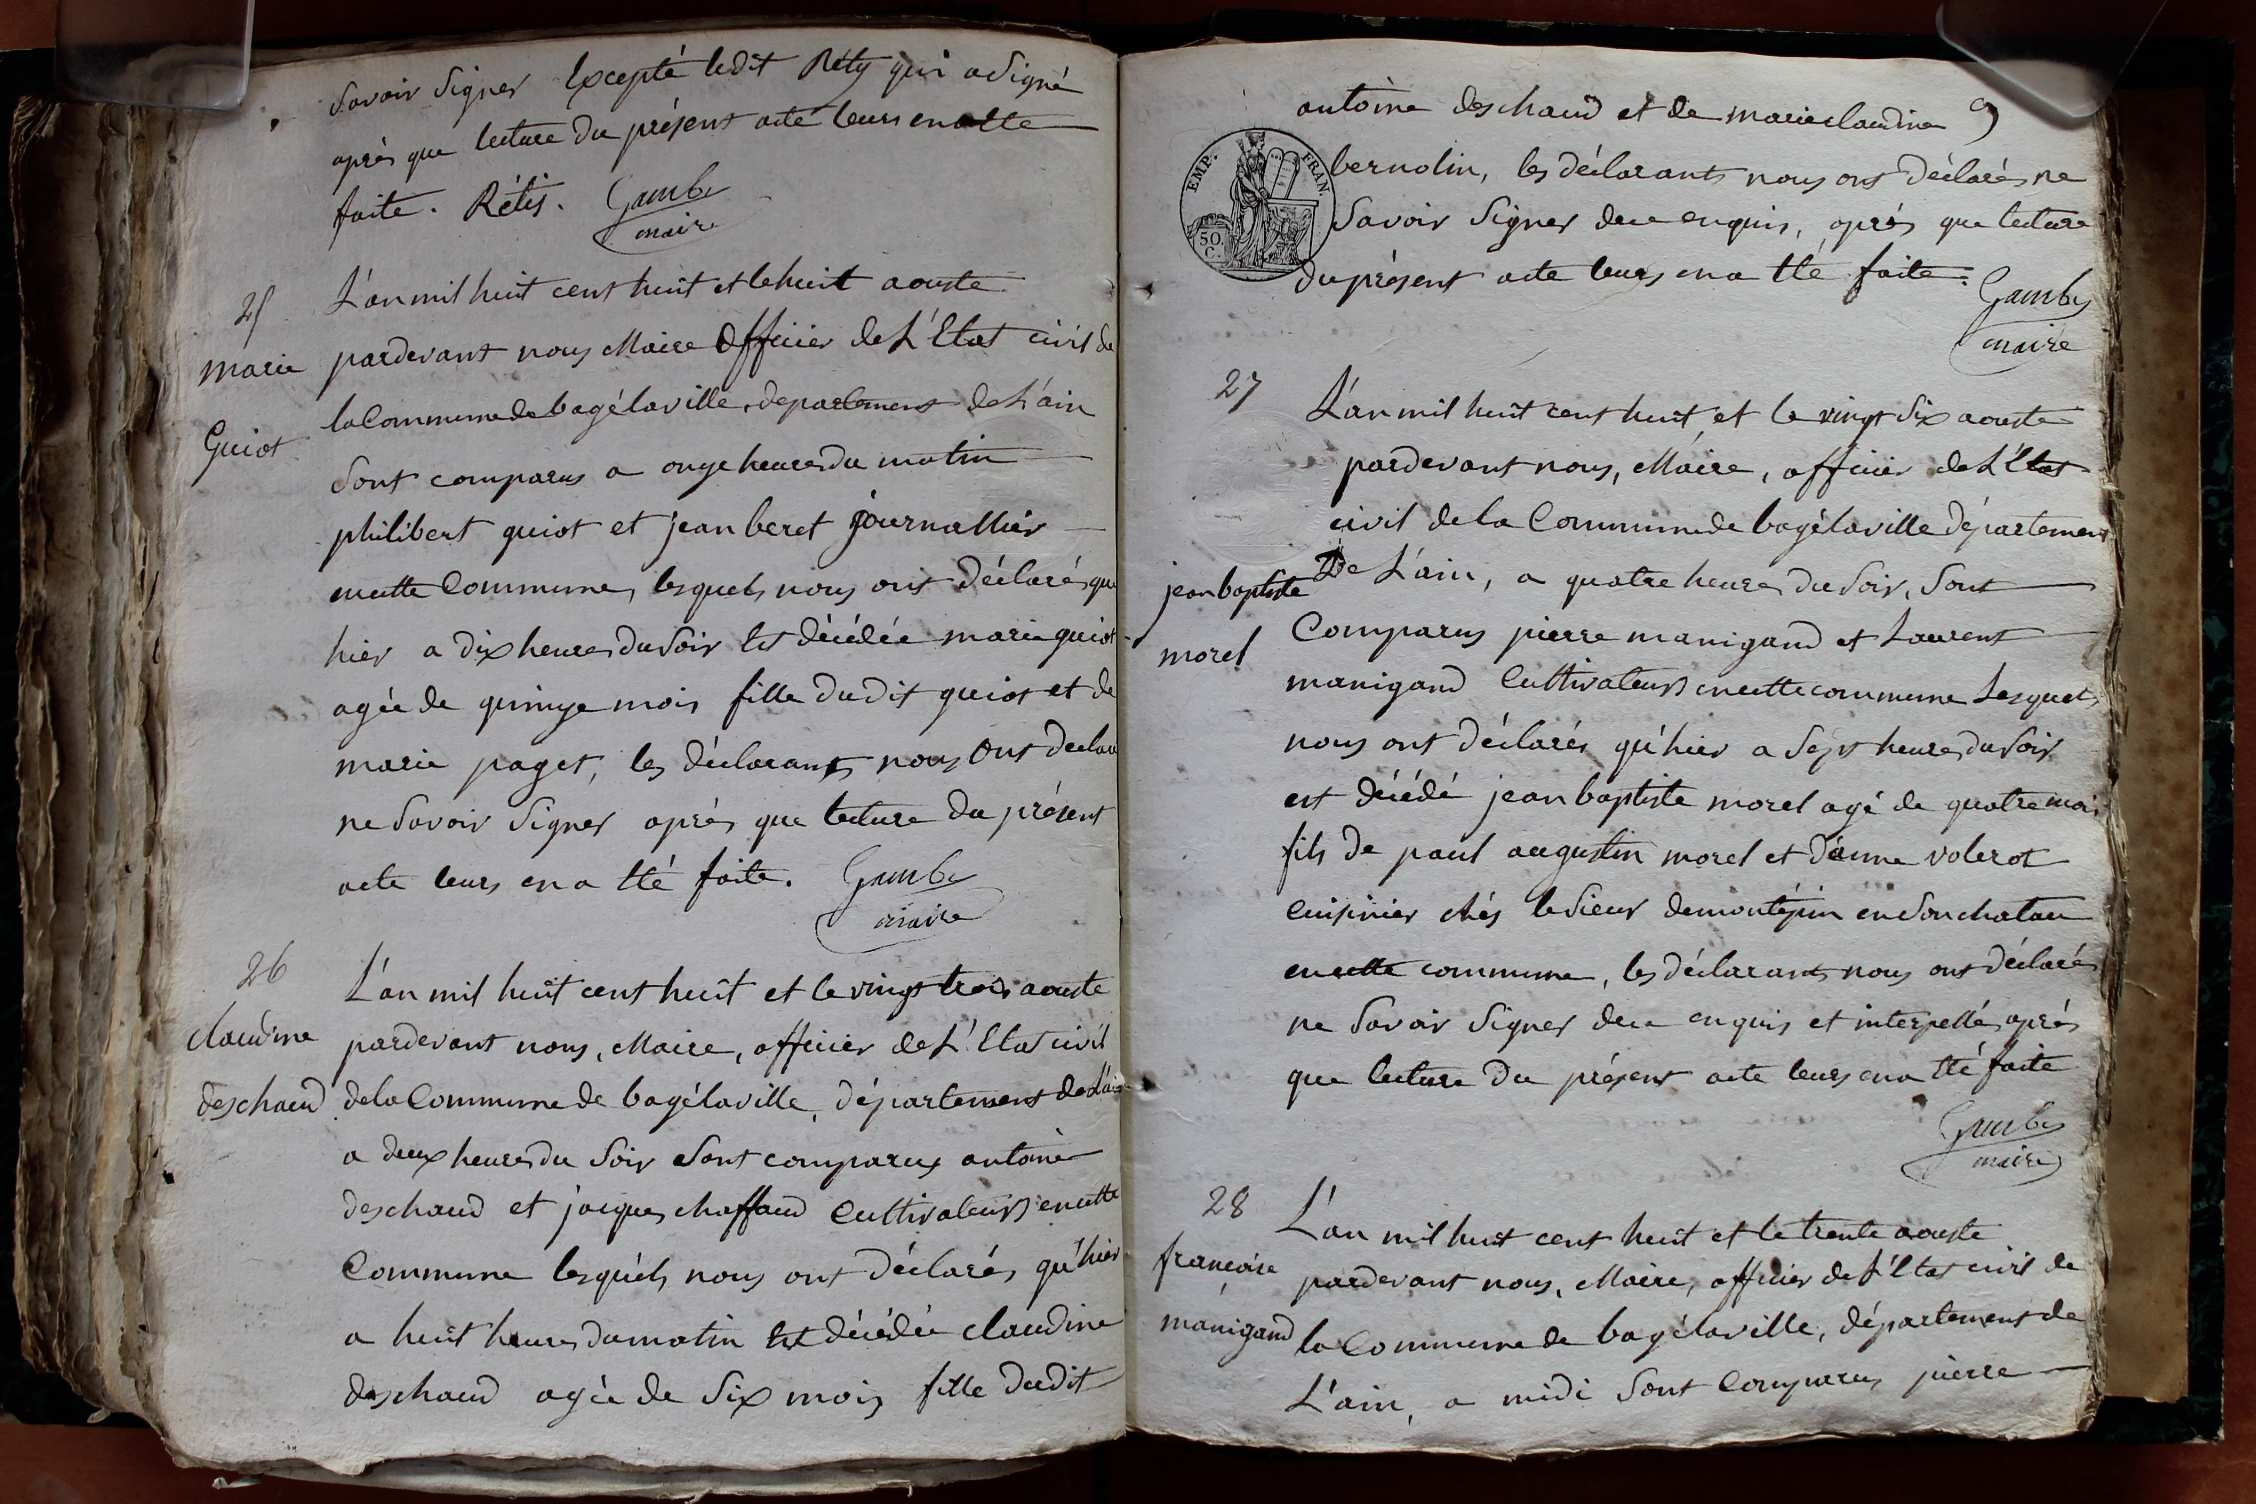 savoir signer Excepté ledit Réty qui a signé
après que lecture du présent acte leurs en a été
faite. Rétis. Gamby
maire
25
marie
Guiot
L'an mil huit cent huit et le huit aouste
pardevant nous Maire Officier de L'Etat civil de
la Commune de bagé la ville, departement de L'ain
sont comparus a onze heures du matin
philibert guiot et jean beret journallier
en cette Commune, lesquels nous ont déclarés que
hier a dix heures du soir Est décédée marie guiot
agée de quinze mois fille dudit guiot et de
marie paget, les déclarants nous Ont declaré
ne savoir signer après que lecture du présent
acte leurs en a été faite. Gamby
maire
26
claudine
deschaud
L'an mil huit cent huit et le vingt trois aouste
pardevant nous, Maire, officier de L'Etat civil
de la Commune de bagé la ville, département de L'ain
a deux heures du soir sont comparus antoine
deschaud et jacques chaffaud Cultivateurs en cette
Commune lesquels nous ont déclarés qu'hier
a huit heures du matin Est décédée claudine
deschaud agée de six mois fille dudit
antoine deschaud et de marie claudine 9
EMP. FRAN.
50 C.
bernolin, les déclarants nous ont déclarés ne
savoir signer de ce enquis, après que lecture
du présent acte leurs en a été faite. Gamby
maire
27
jean baptiste
morel
L'an mil huit cent huit et le vingt six aouste
pardevant nous, Maire, officier de L'Etat
civil de la Commune de bagé la ville département
De L'ain, a quatre heures du soir, sont
Comparus pierre manigand et Laurent
manigand Cultivateurs en cette commune Lesquels
nous ont déclarés qu'hier a sept heures du soir
est décédé jean baptiste morel agé de quatre mois
fils de paul augustin morel et d'anne volerot
Cuisinier chés le sieur demontépin en son chatau
en cette commune, les déclarants nous ont déclarés
ne savoir signer de ce enquis et interpellés après
que lecture du présent acte leurs en a été faite
Gamby
maire
28
françoise
manigand
L'an mil huit cent huit et le trente aouste
pardevant nous, Maire, officier de L'Etat civil de
la Commune de bagé la ville, département de
L'ain, a midi sont Comparus pierre